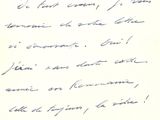 De tout cœur, je vous
remercie de votre lettre
si émouvante. Oui!
j'irai sans doute cette
année en Roumanie,
celle de toujours, la vôtre!